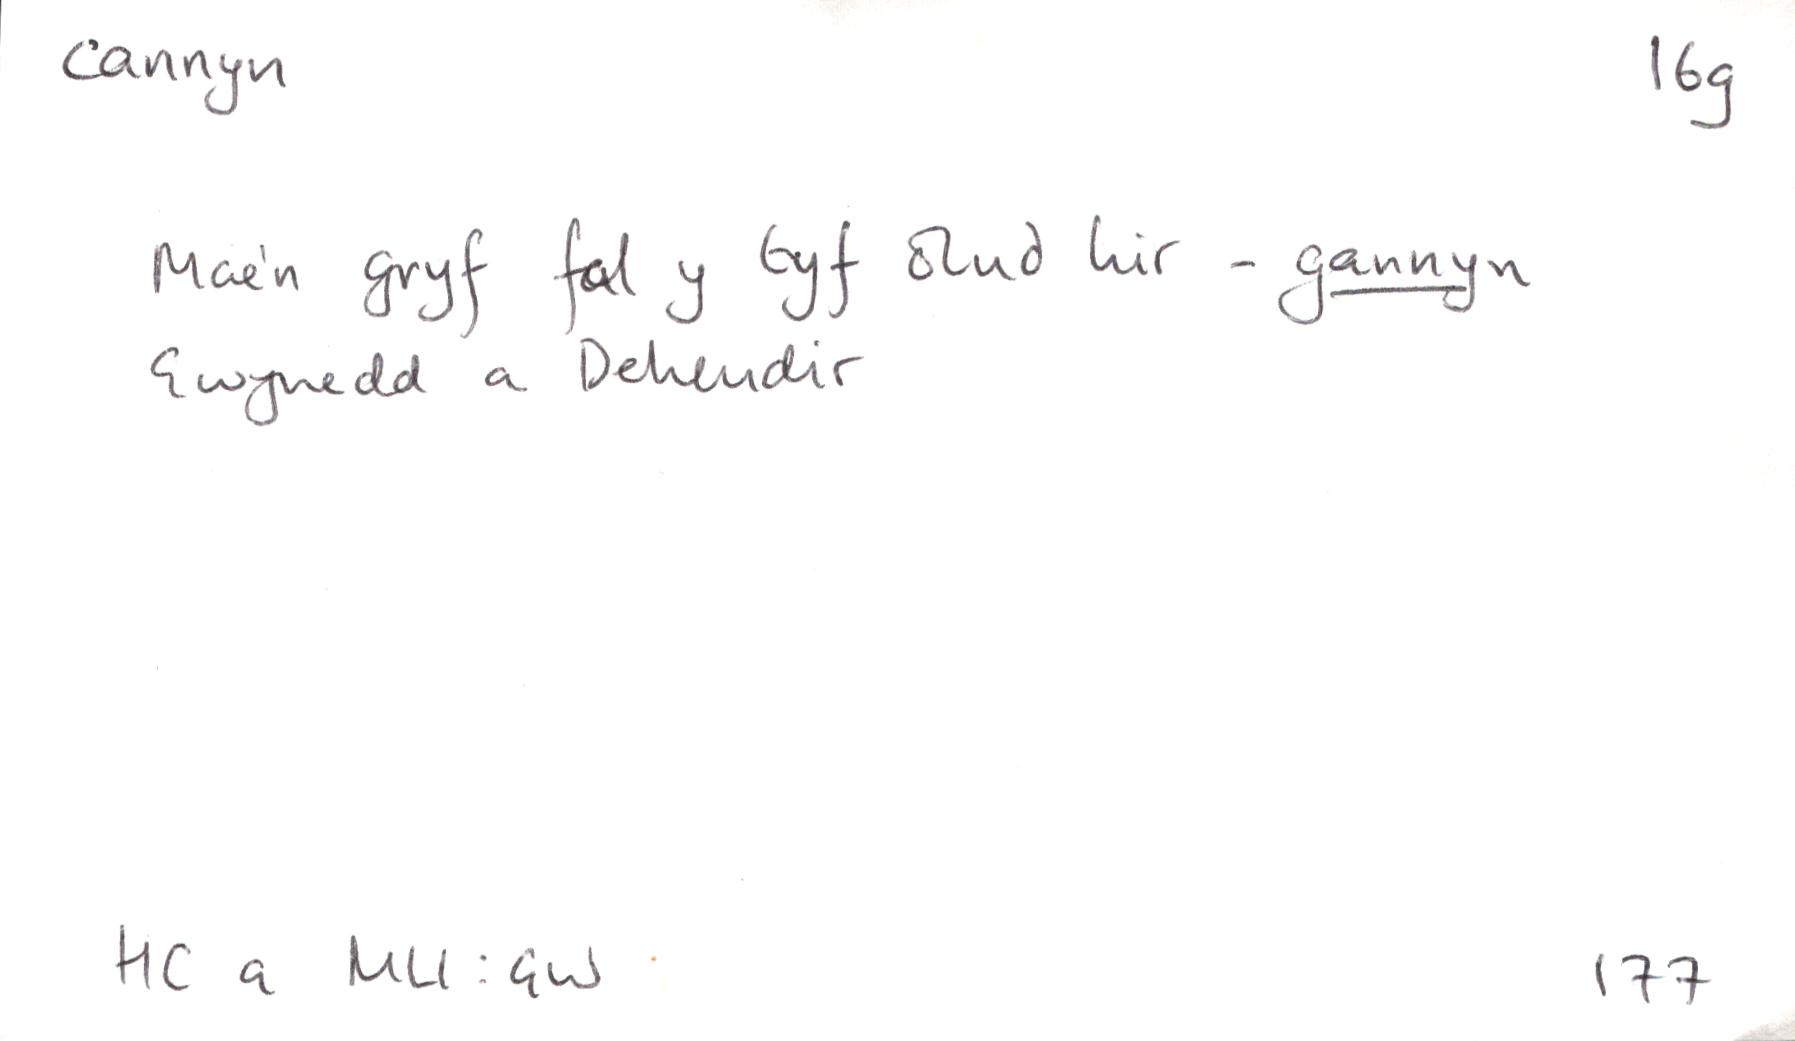 cannyn 16g
Mae'n gryf fal y tyf hir - gannyn
Gwynedd a Deheudir
HC a MLl : GW 177